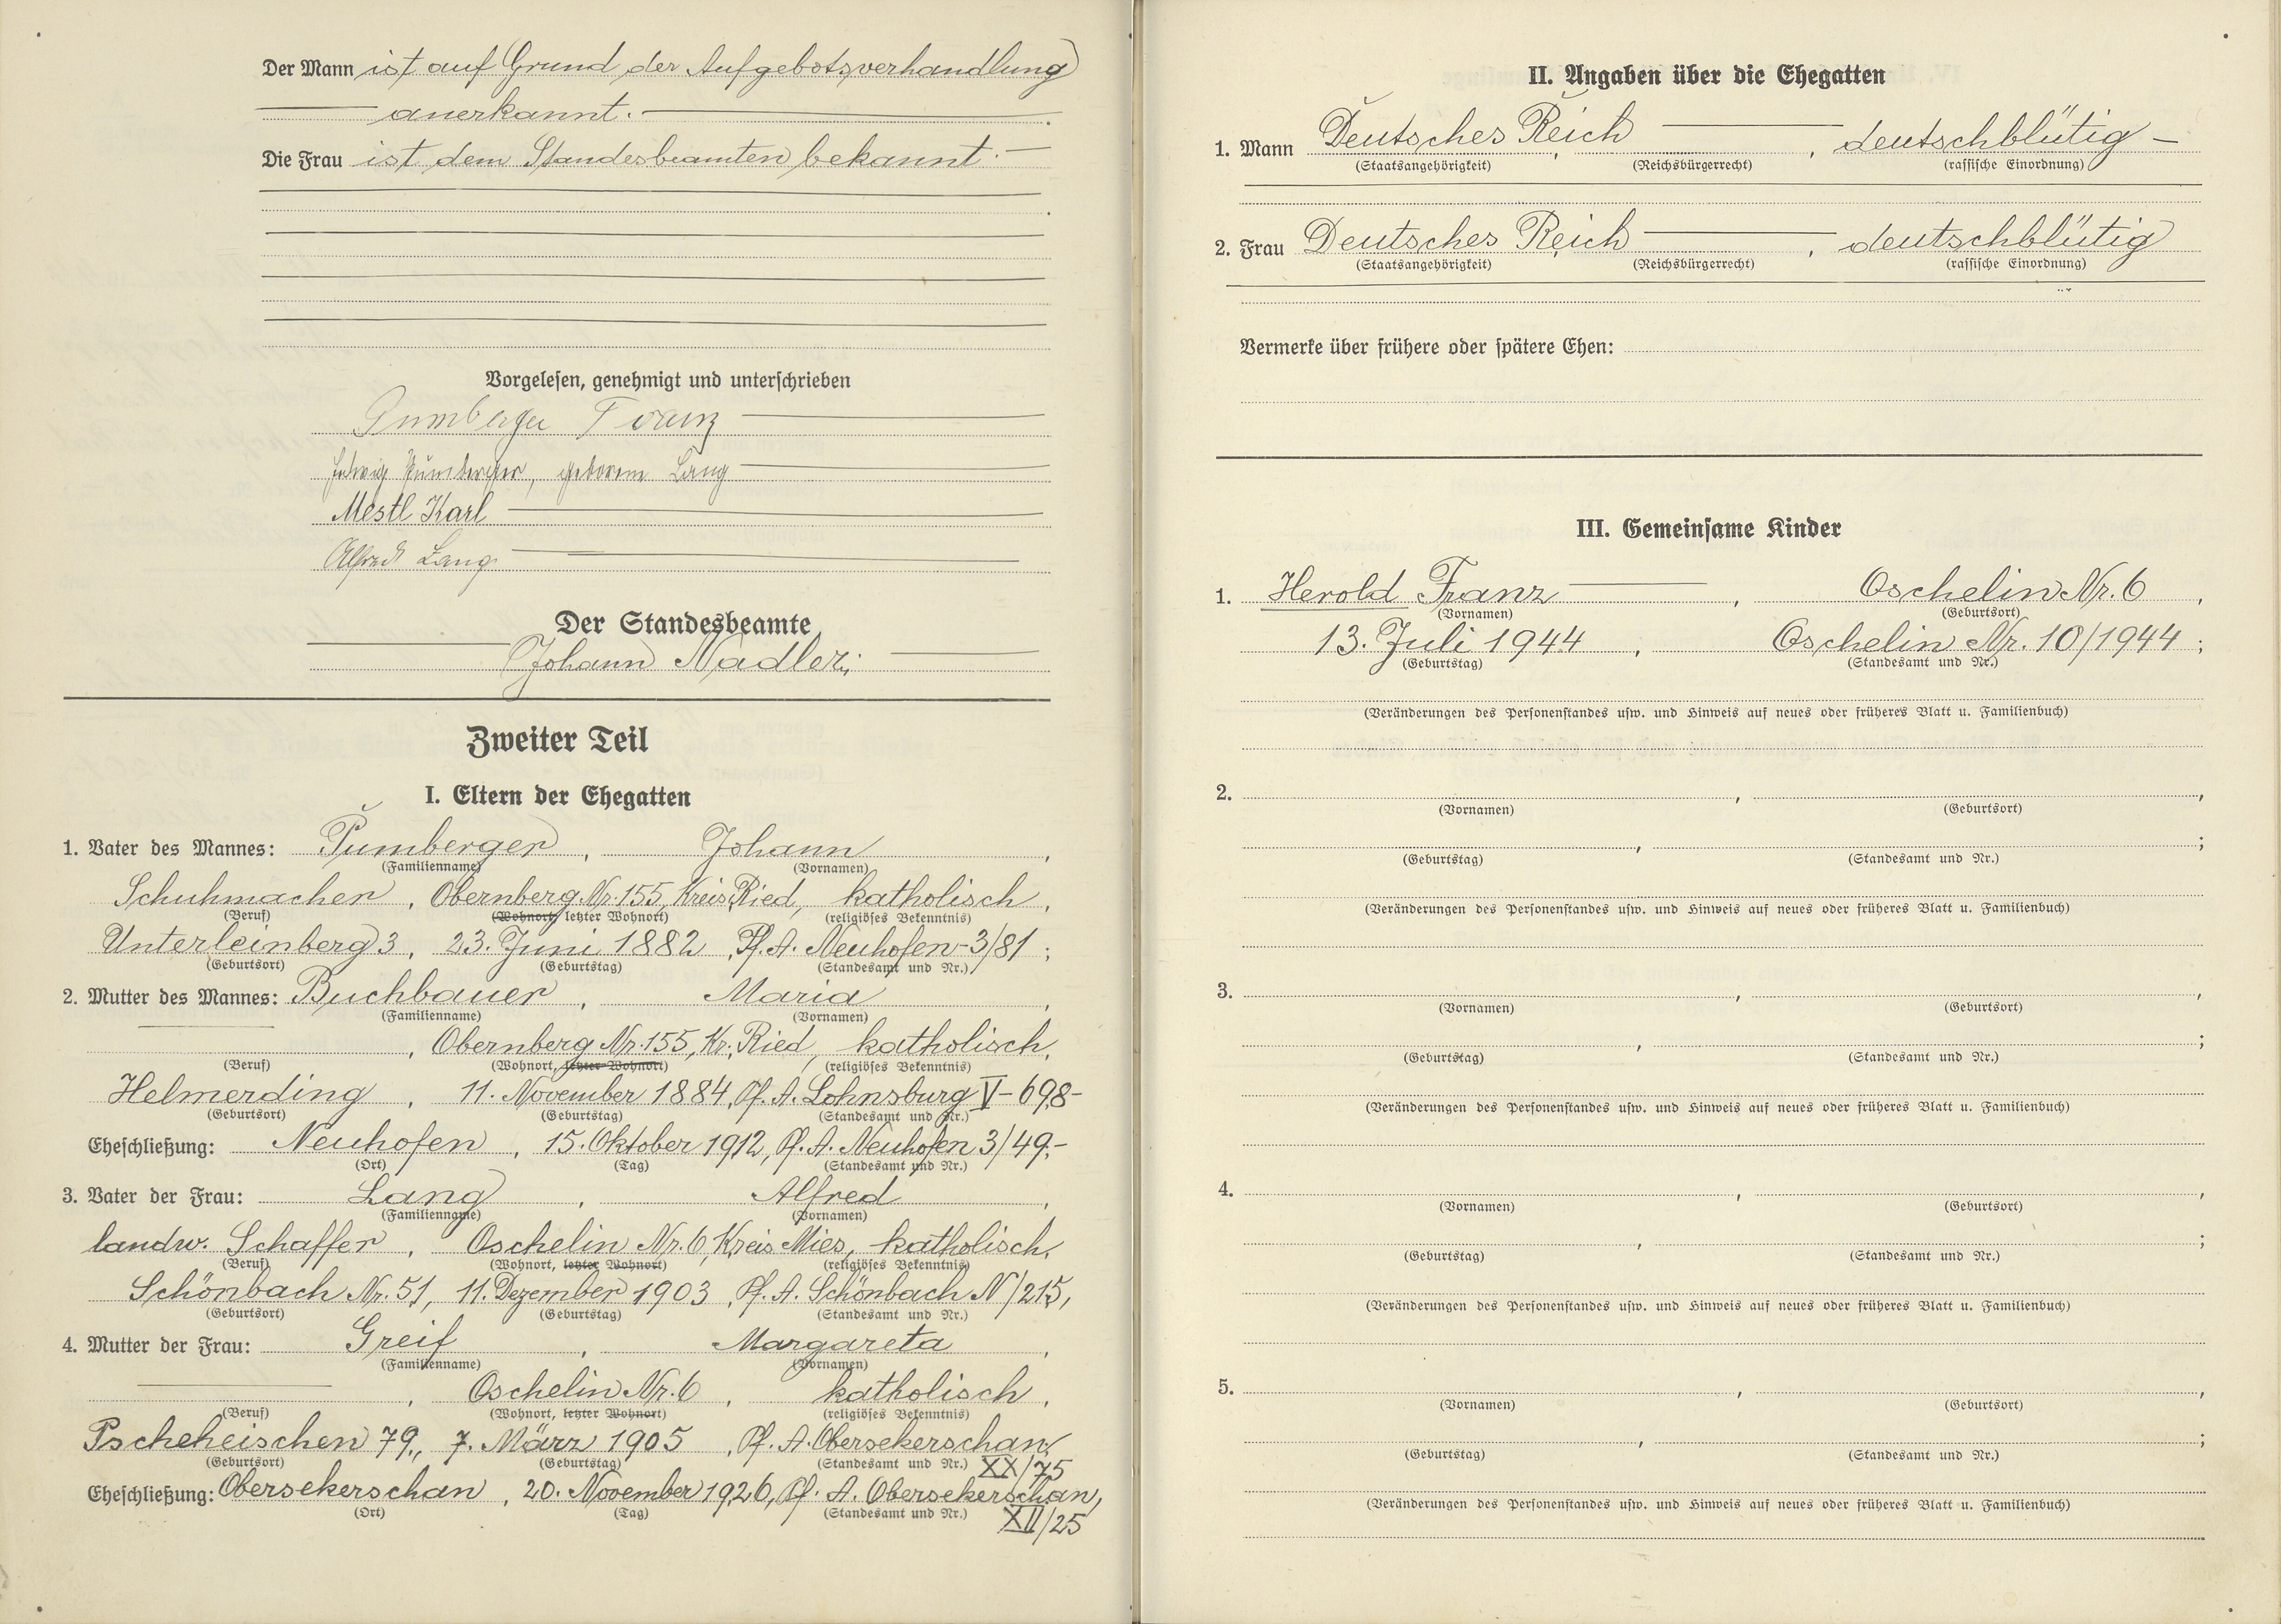 Der Mann ist auf Grund der Aufgebotsverhandlung
anerkannt.
Die Frau ist dem Standesbeamten bekannt.
Vorgelesen, genehmigt und unterschrieben
Pumberger Franz
Hedwig Pumberger, geborene Lang
Mestl Karl
Alfred Lang
Der Standesbeamte
Johann Nadler;
Zweiter Teil
I. Eltern der Ehegatten
1. Vater des Mannes: Pumberger, Johann,
(Familienname) (Vornamen)
Schuhmacher, Obernberg Nr. 155, Kreis Ried, katholisch,
(Beruf) (Wohnort, letzter Wohnort) (religiöses Bekenntnis)
Unterleinberg 3, 23. Juni 1882, Pf. A. Neuhofen-3/81;
(Geburtsort) (Geburtstag) (Standesamt und Nr.)
2. Mutter des Mannes: Buchbauer, Maria,
(Familienname) (Vornamen)
, Obernberg Nr. 155, Kr. Ried, katholisch,
(Beruf) (Wohnort, letzter Wohnort) (religiöses Bekenntnis)
Helmerding, 11. November 1884, Pf. A. Lohnsburg V-698-
(Geburtsort) (Geburtstag) (Standesamt und Nr.)
Eheschließung: Neuhofen, 15. Oktober 1912, Pf. A. Neuhofen 3/49.-
(Ort) (Tag) (Standesamt und Nr.)
3. Vater der Frau: Lang, Alfred,
(Familienname) (Vornamen)
landw. Schaffer, Oschelin Nr. 6, Kreis Mies, katholisch,
(Beruf) (Wohnort, letzter Wohnort) (religiöses Bekenntnis)
Schönbach Nr. 51, 11. Dezember 1903, Pf. A. Schönbach N/215,
(Geburtsort) (Geburtstag) (Standesamt und Nr.)
4. Mutter der Frau: Greif, Margareta,
(Familienname) (Vornamen)
, Oschelin Nr. 6, katholisch,
(Beruf) (Wohnort, letzter Wohnort) (religiöses Bekenntnis)
Pscheheischen 79, 7. März 1905, Pf. A. Obersekerschan,
(Geburtsort) (Geburtstag) (Standesamt und Nr.) XX/75
Eheschließung: Obersekerschan, 20. November 1926, Pf. A. Obersekerschan,
(Ort) (Tag) (Standesamt und Nr.) XII/25
II. Angaben über die Ehegatten
1. Mann Deutsches Reich, deutschblütig -
(Staatsangehörigkeit) (Reichsbürgerrecht) (rassische Einordnung)
2. Frau Deutsches Reich, deutschblütig
(Staatsangehörigkeit) (Reichsbürgerrecht) (rassische Einordnung)
Vermerke über frühere oder spätere Ehen:
III. Gemeinsame Kinder
1. Herold Franz, Oschelin Nr. 6,
(Vornamen) (Geburtsort)
13. Juli 1944, Oschelin Nr. 10/1944;
(Geburtstag) (Standesamt und Nr.)
(Veränderungen des Personenstandes usw. und Hinweis auf neues oder früheres Blatt u. Familienbuch)
2. , ,
(Vornamen) (Geburtsort)
, ;
(Geburtstag) (Standesamt und Nr.)
(Veränderungen des Personenstandes usw. und Hinweis auf neues oder früheres Blatt u. Familienbuch)
3. , ,
(Vornamen) (Geburtsort)
, ;
(Geburtstag) (Standesamt und Nr.)
(Veränderungen des Personenstandes usw. und Hinweis auf neues oder früheres Blatt u. Familienbuch)
4. , ,
(Vornamen) (Geburtsort)
, ;
(Geburtstag) (Standesamt und Nr.)
(Veränderungen des Personenstandes usw. und Hinweis auf neues oder früheres Blatt u. Familienbuch)
5. , ,
(Vornamen) (Geburtsort)
, ;
(Geburtstag) (Standesamt und Nr.)
(Veränderungen des Personenstandes usw. und Hinweis auf neues oder früheres Blatt u. Familienbuch)